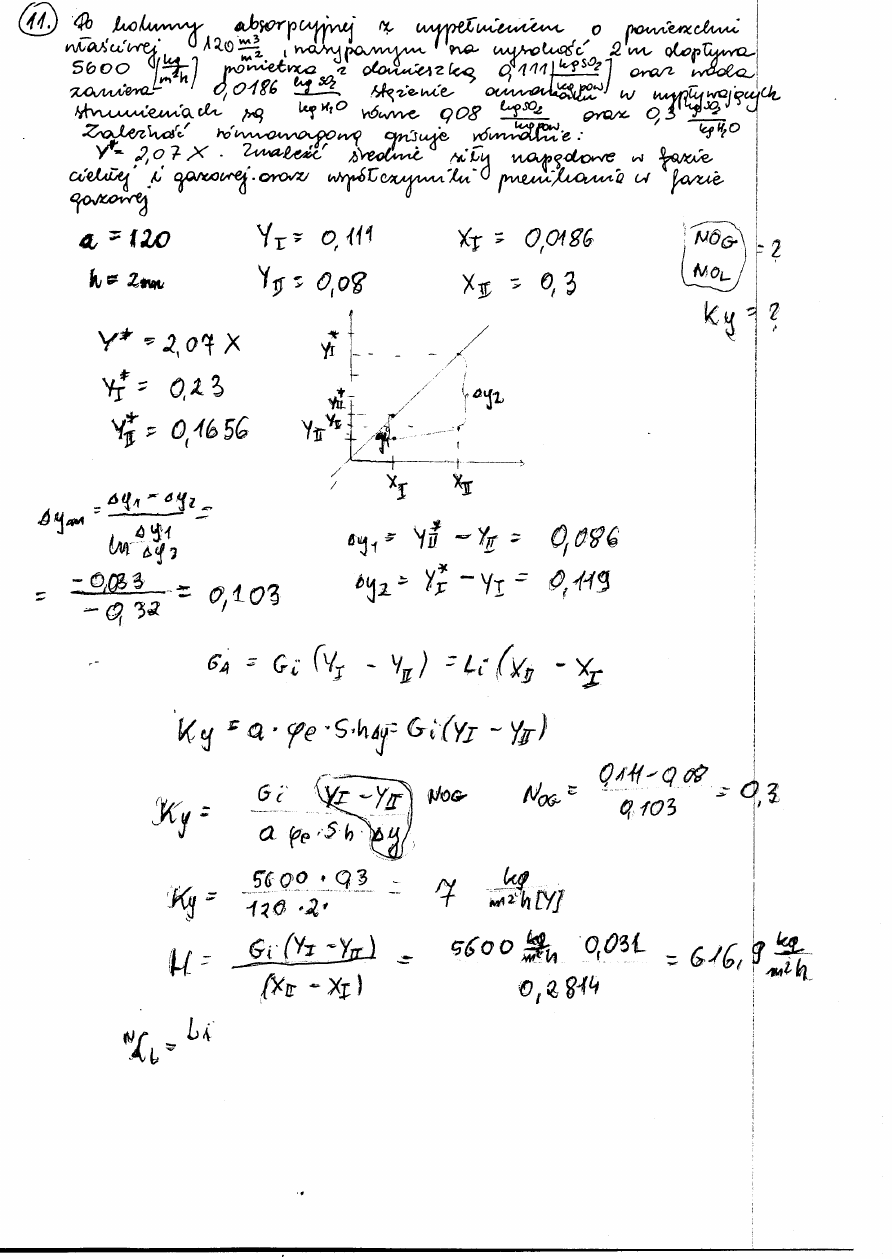 11. Do kolumny absorpcyjnej z wypełnieniem o powierzchni
właściwej 120 m3/m2, nasypanym na wysokość 2m dopływa
5600 [kg/m²h] powietrza z domieszką 0,111 [kg SO2/kg pow] oraz woda
zawiera 0,0186 kg SO2/kg H2O stężenie amoniaku w wypływających
strumieniach są równe 0,08 kg SO2/kg pow oraz 0,3 kg SO2/kg H2O
Zależność równowagową opisuje równanie:
Y* = 2,07 X. Znaleść średnie siły napędowe w fazie
ciekłej i gazowej oraz współczynniki przenikania w fazie
gazowej
a = 120 Y_I = 0,111 X_I = 0,0186 NOG = ?
h = 2m Y_II = 0,08 X_II = 0,3 NOL
Ky = ?
Y* = 2,07 X
Y_I* = 0,23
Y_II* = 0,1656
Y_I*
Y_II*
Y_I
Y_II
Δy2
X_I X_II
Δym = (Δy1 - Δy2)/(ln Δy1/Δy2) =
= -0,033/-0,32 = 0,103
Δy1 = Y_II* - Y_II = 0,086
Δy2 = Y_I* - Y_I = 0,119
GA = Gi (Y_I - Y_II) = Li (X_II - X_I
Ky = a · φe · S · h Δy = Gi (Y_I - Y_II)
Ky = Gi (Y_I - Y_II)/(a φe · S h · Δy) NOG NOG = (0,111 - 0,08)/0,103 = 0,3
Ky = (5600 · 0,3)/(120 · 2 ·) = 7 kg/m²h[Y]
H = Gi (Y_I - Y_II)/(X_II - X_I) = (5600 kg/m²h 0,031)/0,2814 = 616,9 kg/m²h
Li